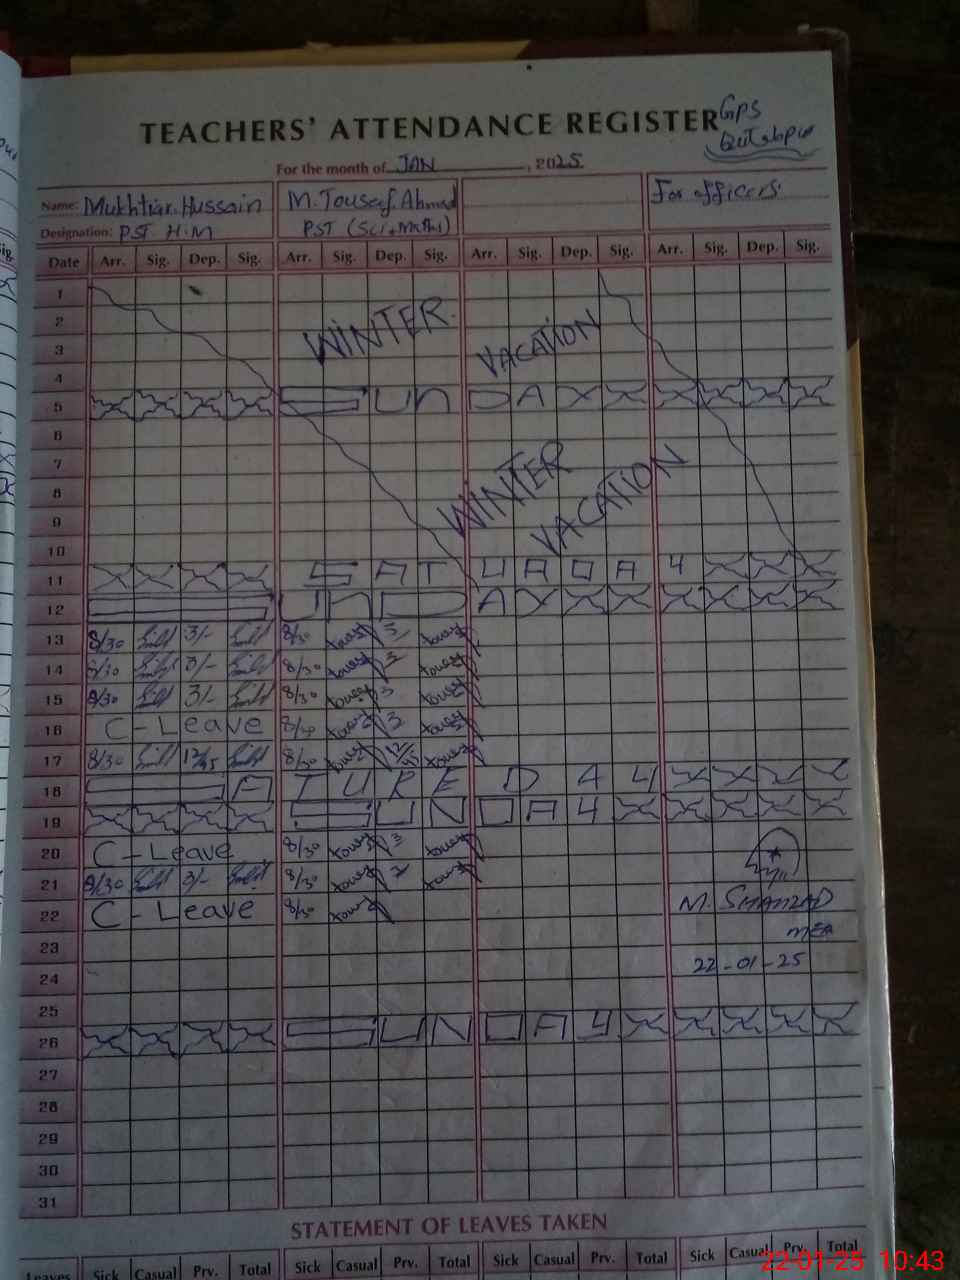 GPS
TEACHERS' ATTENDANCE REGISTER
For the month of JAN, 2025
Name: Mukhtiar Hussain M. Touseef Ahmad For officers
Designation: PST H.M PST (Sci+Math)
Date Arr. Sig. Dep. Sig. Arr. Sig. Dep. Sig. Arr. Sig. Dep. Sig. Arr. Sig. Dep. Sig.
1
2 WINTER
3 VACATION
4
5 SUNDAY
6
7 WINTER
8 VACATION
9
10
11 SATURDAY
12 SUNDAY
13 8/30 3/- 8/30 3
14 8/30 3/- 8/30 3
15 8/30 3/- 8/30 3
16 C-Leave 8/30 3
17 8/30 12/45 8/30 12/45
18 SATUREDAY
19 SUNDAY
20 C-Leave 8/30 3
21 8/30 3/- 8/30
22 C-Leave 8/30 M. SHAHZAD
23 MEA
24 22-01-25
25
26 SUNDAY
27
28
29
30
31
STATEMENT OF LEAVES TAKEN
Leaves Sick Casual Prv. Total Sick Casual Prv. Total Sick Casual Prv. Total Sick Casual Prv. Total
22-01-25 10:43